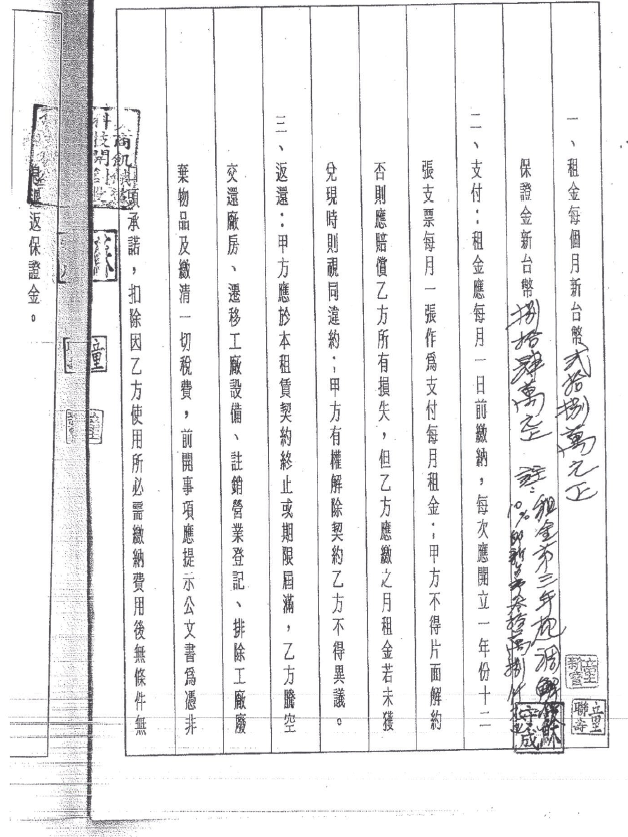 一、租金每個月新台幣貳拾捌萬元正
保證金新台幣捌拾肆萬正 註:租金第三年起調
10%即新台幣叁拾萬捌仟
二、支付：租金應每月一日前繳納，每次應開立一年份十二
張支票每月一張作為支付每月租金；甲方不得片面解約
否則應賠償乙方所有損失，但乙方應繳之月租金若未獲
兌現時則視同違約；甲方有權解除契約乙方不得異議。
三、返還：甲方應於本租賃契約終止或期限屆滿，乙方騰空
交還廠房、遷移工廠設備、註銷營業登記、排除工廠廢
棄物品及繳清一切稅費，前開事項應提示公文書為憑非
承諾，扣除因乙方使用所必需繳納費用後無條件無
返保證金。